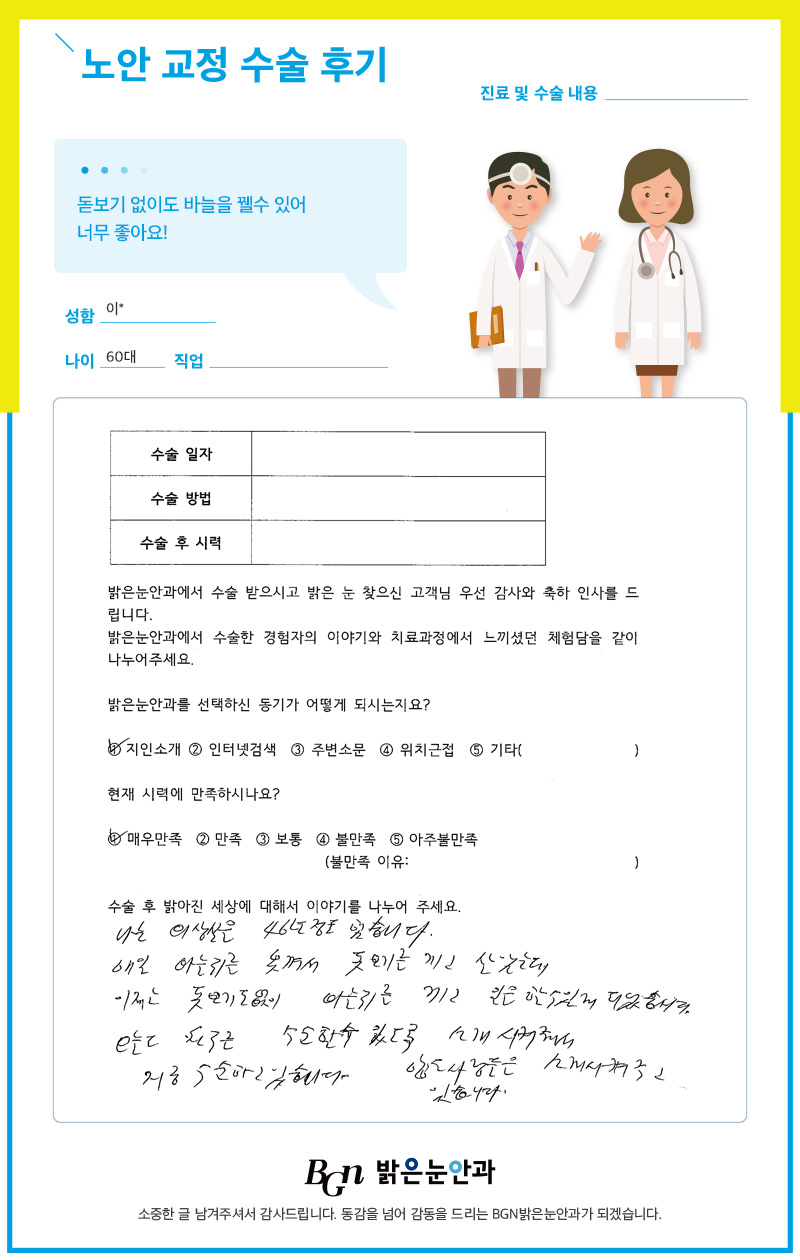 노안 교정 수술 후기
진료 및 수술 내용
돋보기 없이도 바늘을 꿸수 있어
너무 좋아요!
성함 이*
나이 60대 직업
수술 일자
수술 방법
수술 후 시력
밝은눈안과에서 수술 받으시고 밝은 눈 찾으신 고객님 우선 감사와 축하 인사를 드
립니다.
밝은눈안과에서 수술한 경험자의 이야기와 치료과정에서 느끼셨던 체험담을 같이
나누어주세요.
밝은눈안과를 선택하신 동기가 어떻게 되시는지요?
① 지인소개 ② 인터넷검색 ③ 주변소문 ④ 위치근접 ⑤ 기타( )
현재 시력에 만족하시나요?
① 매우만족 ② 만족 ③ 보통 ④ 불만족 ⑤ 아주불만족
(불만족 이유: )
수술 후 밝아진 세상에 대해서 이야기를 나누어 주세요.
나는 의상실은 46년도 정도 했습니다.
매일 바늘귀를 못껴서 돗보기를 끼고
이제는 돗보기도없이 바늘귀를 끼고 일을 할수있게 되었습니다.
수술할수 있도록 소개 시켜줘서
수술하고 있습니다. 소개시켜주고
있습니다.
BGn 밝은눈안과
소중한 글 남겨주셔서 감사드립니다. 동감을 넘어 감동을 드리는 BGN밝은눈안과가 되겠습니다.